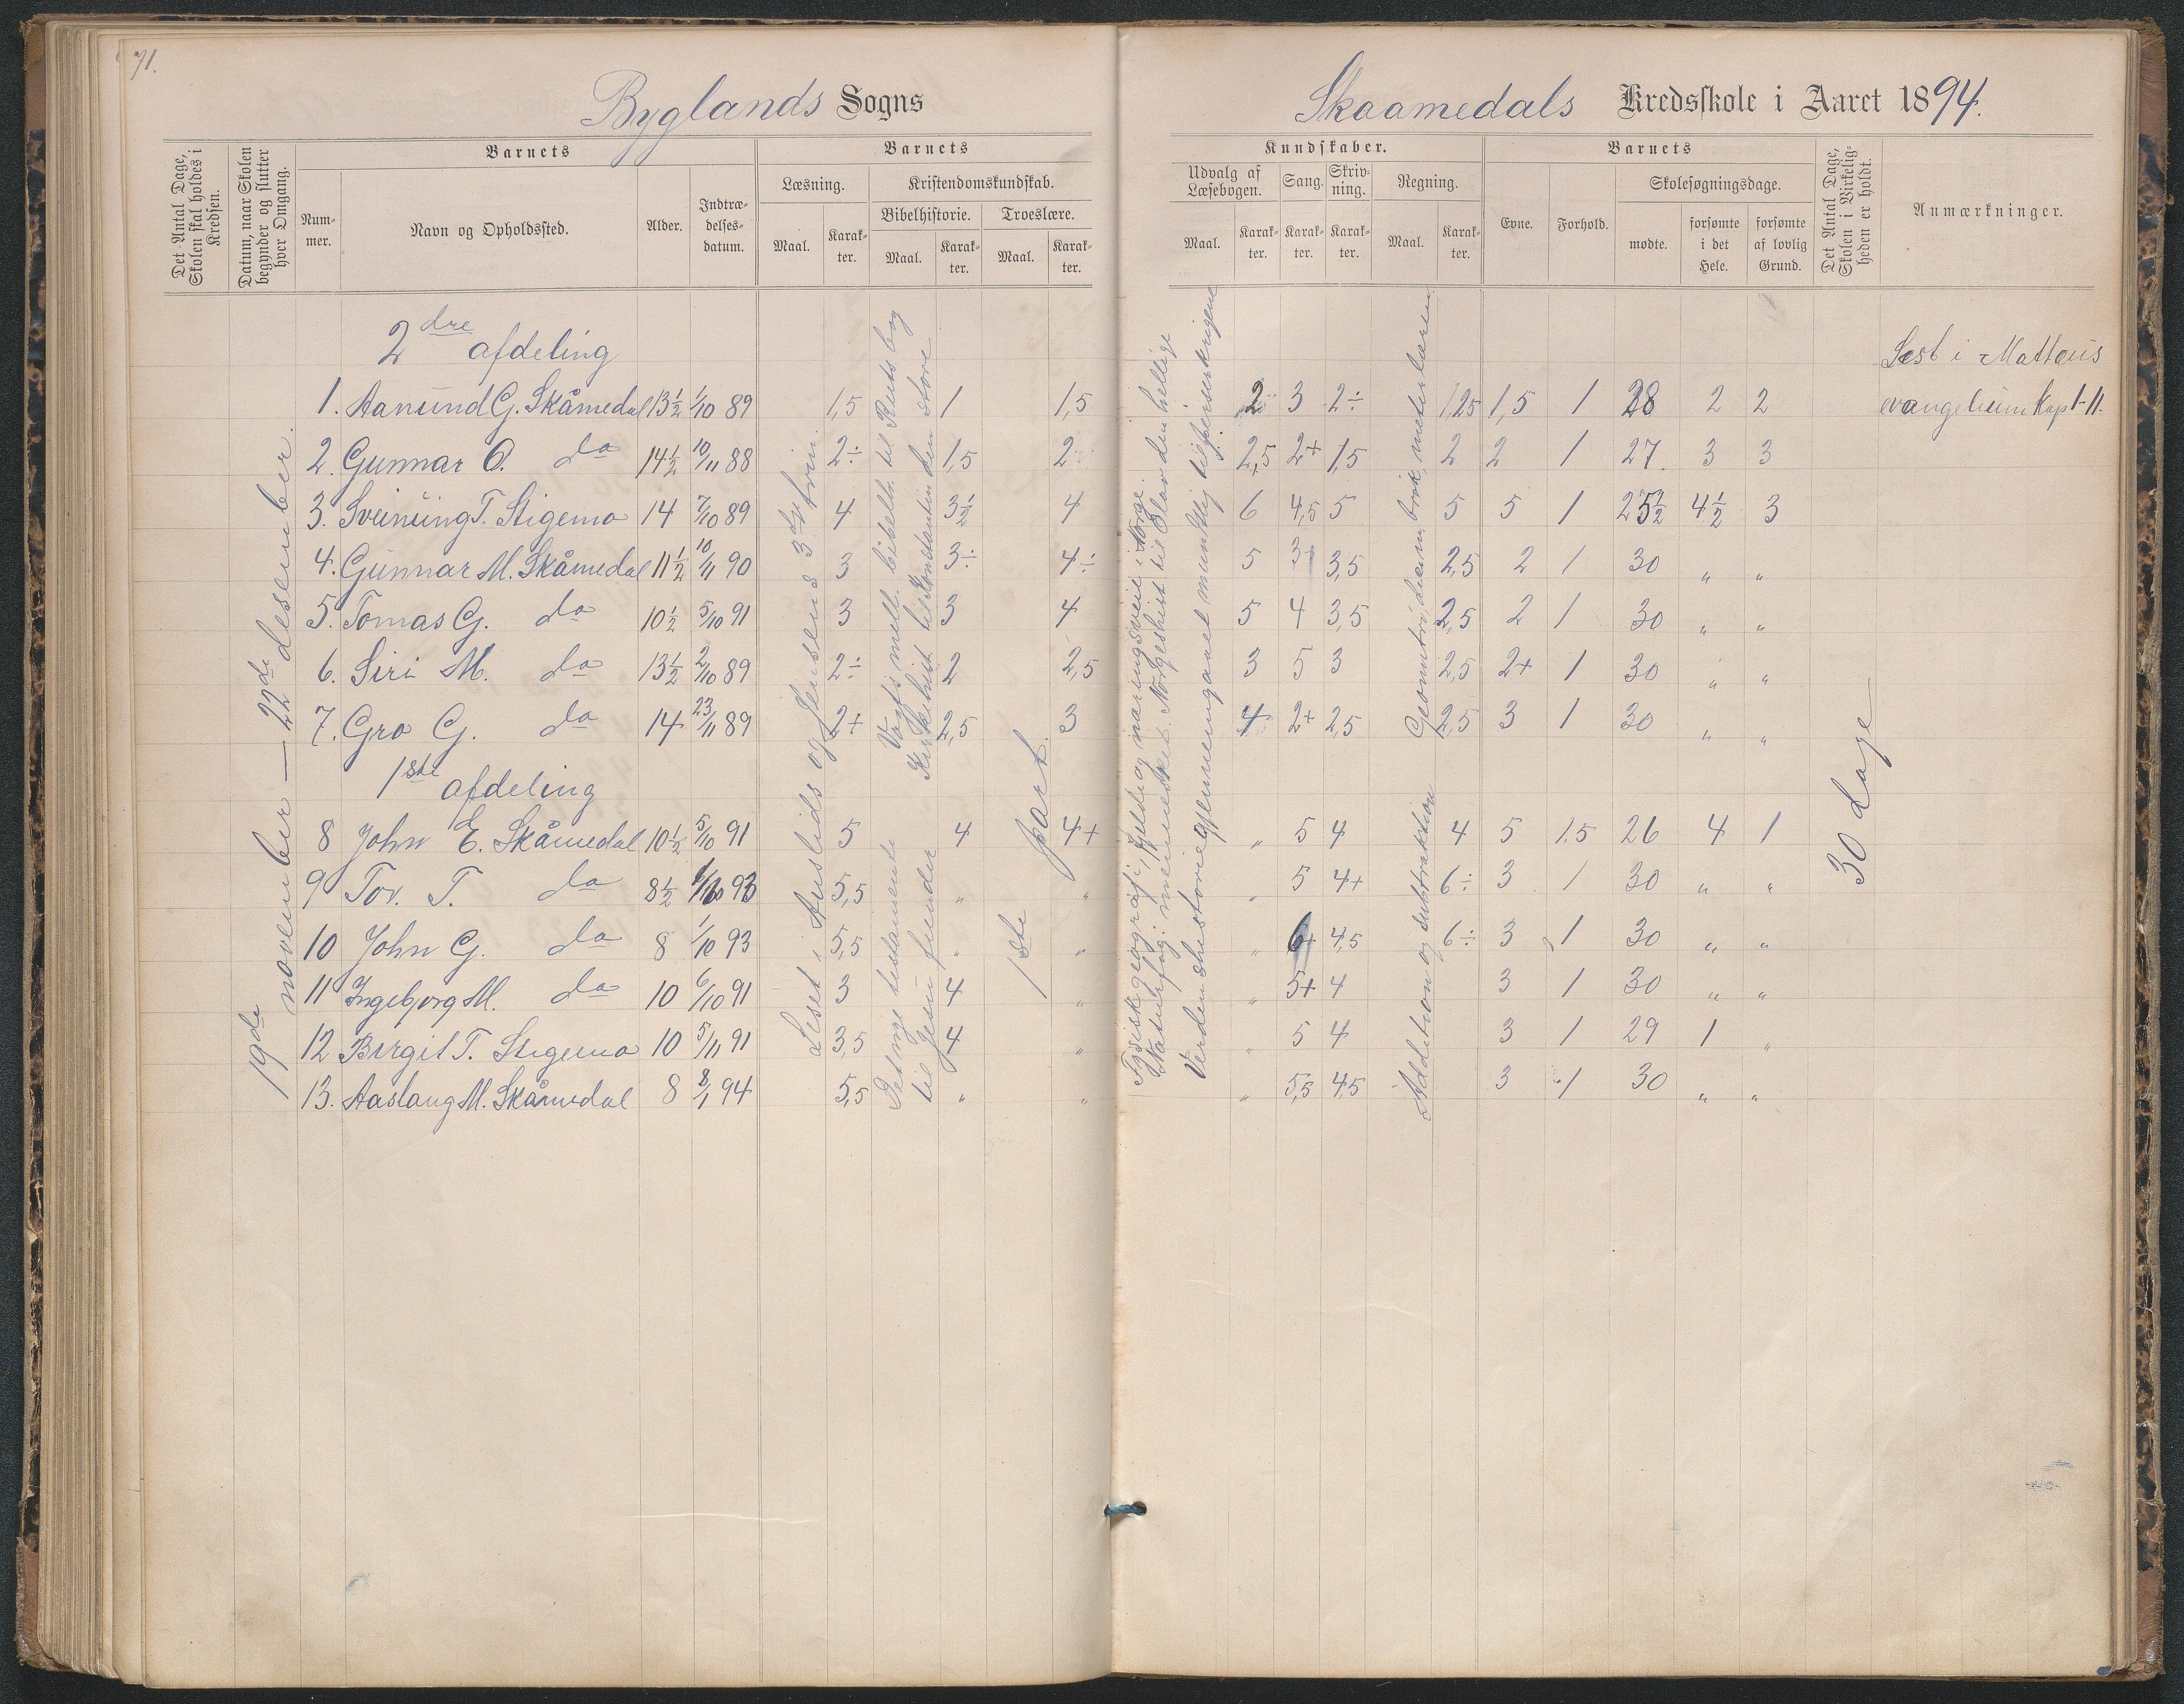 71.
Byglands Sogns
Skaamedals Kredsskole i Aaret 1894.
Det Antal Dage, Skolen skal holdes i Kredsen.
Datum, naar Skolen begynder og slutter hver Omgang.
Barnets
Nummer.
Navn og Opholdssted.
Alder.
Indtrædelsesdatum.
Barnets
Læsning.
Maal.
Karakter.
Kristendomskundskab.
Bibelhistorie.
Maal.
Karakter.
Troeslære.
Maal.
Karakter.
Kundskaber.
Udvalg af Læsebogen.
Maal.
Karakter.
Sang.
Karakter.
Skrivning.
Karakter.
Regning.
Maal.
Karakter.
Barnets
Evne.
Forhold.
Skolesøgningsdage.
mødte.
forsømte i det Hele.
forsømte af lovlig Grund.
Det Antal Dage, Skolen i Virkeligheden er holdt.
Anmærkninger.
19de november — 22de desember.
2dre afdeling
1. Aanund G. Skåmedal 13½ 1/10 89 1,5 1 1,5 2 3 2÷ 1,25 1,5 1 28 2 2
2. Gunnar O. do 14½ 10/11 88 2÷ 1,5 2÷ 2,5 2+ 1,5 2 2 1 27. 3 3
3. Sveinung T. Stigemo 14 7/10 89 4 3½ 4 6 4,5 5 5 5 1 25½ 4½ 3
4. Gunnar M. Skåmedal 11½ 10/11 90 3 3÷ 4÷ 5 3 3,5 2,5 2 1 30 „ „
5. Tomas G. do 10½ 5/10 91 3 3 4 5 4 3,5 2,5 2 1 30 „ „
6. Siri M. do 13½ 2/10 89 2÷ 2 2,5 3 5 3 2,5 2+ 1 30 „ „
7. Gro G. do 14 23/11 89 2+ 2,5 3 4 2+ 2,5 2,5 3 1 30 „ „
1ste afdeling
8 John E. Skåmedal 10½ 5/10 91 5 4 4+ „ 5 4 4 5 1.5 26 4 1
9 Tov. T. do 8½ 93 5,5 „ „ „ 5 4+ 6÷ 3 1 30 „ „
10 John G. do 8 1/10 93 5,5 „ „ „ 6+ 4,5 6÷ 3 1 30 „ „
11 Ingeborg M. do 10 6/10 91 3 4 „ „ 5+ 4 3 1 30 „ „
12 Birgit T. Stigemo 10 5/11 91 3,5 4 „ „ 5 4 3 1 29 1 „
13. Aaslaug M. Skåmedal 8 8/1 94 5,5 „ „ „ 5,5 4,5 3 1 30 „ „
Leset i Auslids og Jensens 3die trin.
Vogts mell. bibelh. til Ruts bog
Kirkehist til Konstantin den store
Det nye testamente
til Jesu fiender
1ste part.
Fysisk geografi, fjeld og næringsveie i Norge.
Naturfag: mennesket. Norgeshist til Olav den hellige
Verdenshistorie gjennemgaaet til perserkrigene
Geometri, desim. brøk, meterlæren
Addition og subtraktion
30 dage
Lest i Mattæus
evangelium Kap 1-11.